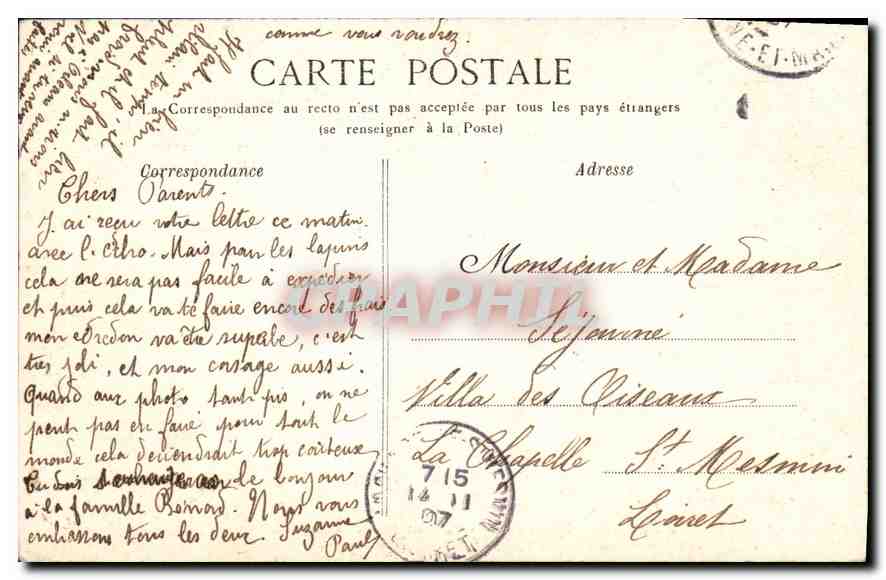 comme vous voudrez.
CARTE POSTALE
La Correspondance au recto n'est pas acceptée par tous les pays étrangers
(se renseigner à la Poste)
Correspondance
Chers Parents.
J'ai reçu votre lettre ce matin
avec l'. Mais pour les lapins
cela ne sera pas facile à expédier
et puis cela va te faire encore des frais
mon edredon va être superbe, c'est
très joli, et mon corsage aussi.
Quand aux photo tant pis, on ne
peut pas en faire pour tout le
monde cela deviendrait trop couteux
le bonjour
à la famille Renard. Nous vous
embrassons tous les deux. Suzanne
Paul
Il fait un bien
vilain temps, il
pleut et il fait bien
froid
Adresse
Monsieur et Madame
Séjourné
Villa des Oiseaux
La Chapelle St. Mesmin
Loiret
7 15
14 11
07
VE-ET-MA
CPARPHIL